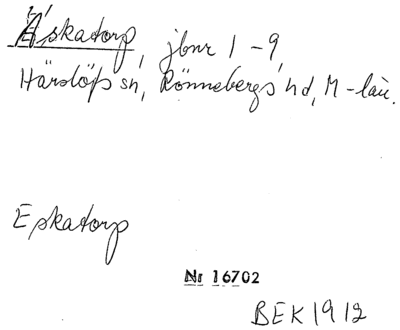 Äskatorp, jbnr 1-9,
Härslöfs sn, Rönnebergs hd, M-län.
Eskatorp
Nr 16702
BEK 1912